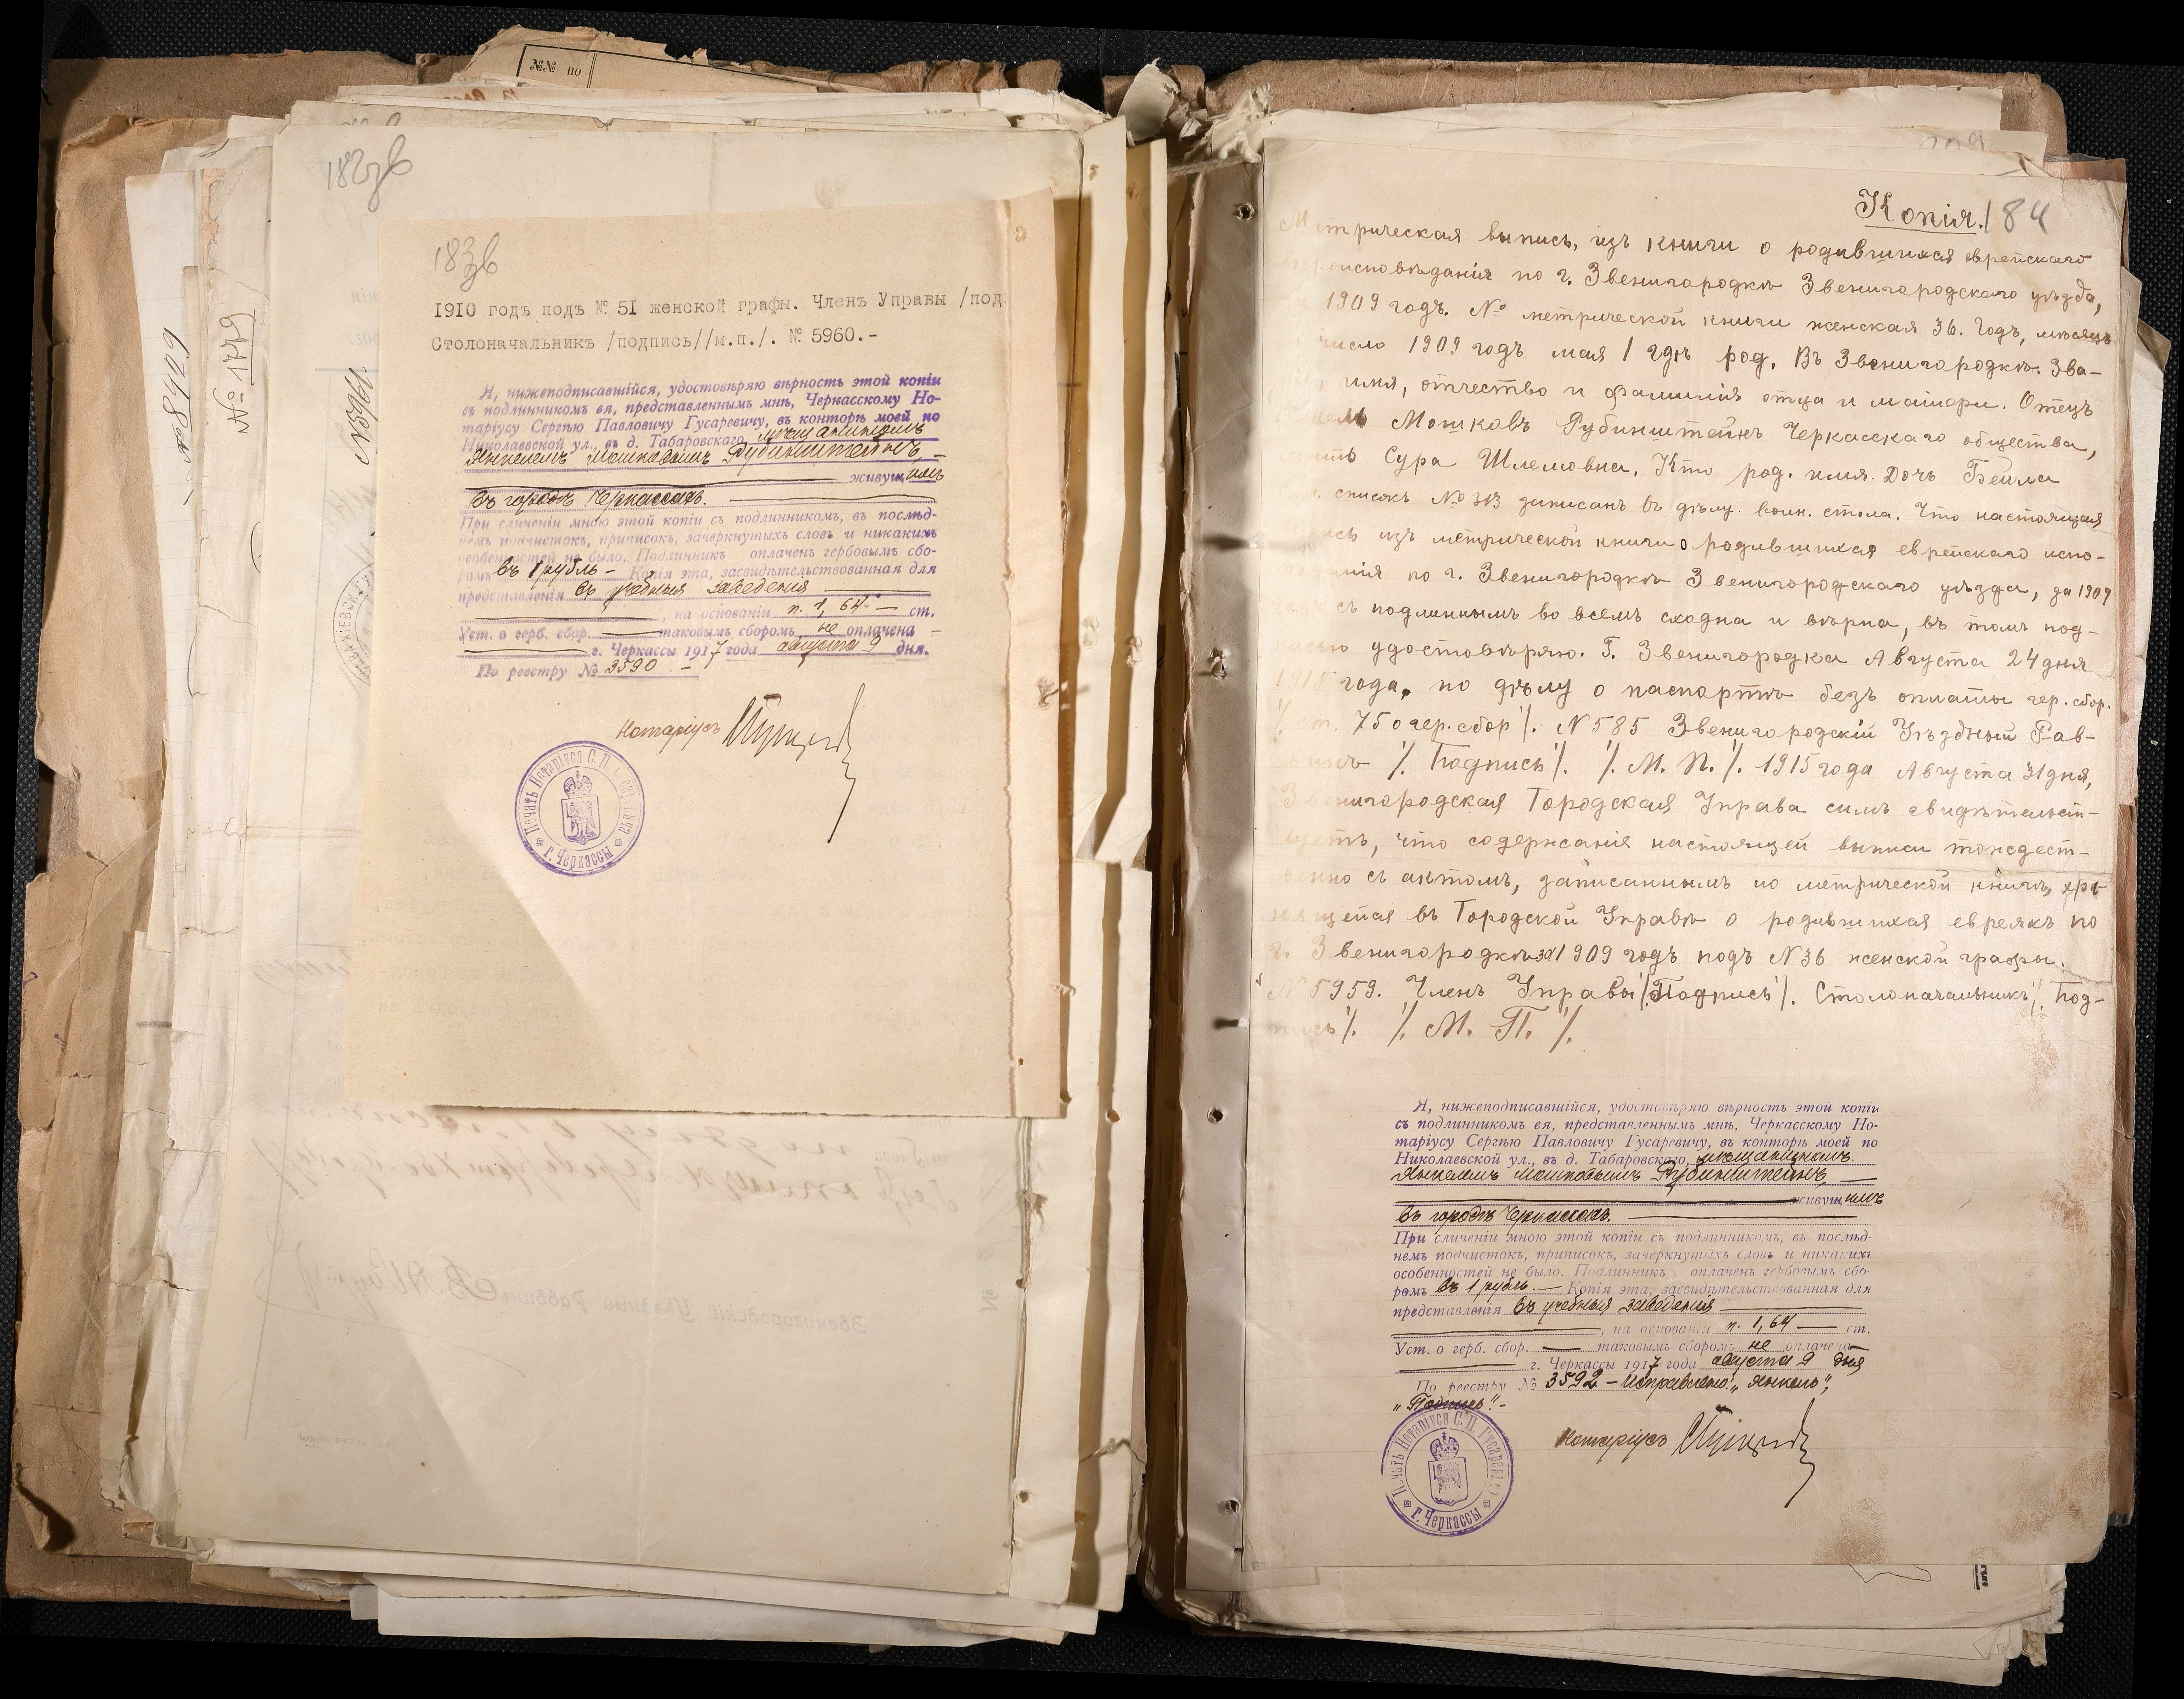 №№ по
182зв
№ 8429
№ 1779
N5961.
183зв
1910 годъ подъ № 51 женской графы. Членъ Управы /под
Столоначальникъ /подпись//м.п./. № 5960.-
Я, нижеподписавшійся, удостовѣряю вѣрность этой копіи
съ подлинникомъ ея, представленнымъ мнѣ, Черкасскому Но-
таріусу Сергѣю Павловичу Гусаревичу, въ конторѣ моей по
Николаевской ул., въ д. Табаровскаго, мѣщаниномъ
Янкелемъ Мошковымъ Рубинштейнъ, —
живущимъ
въ городѣ Черкассахъ.
При сличеніи мною этой копіи съ подлинникомъ, въ послѣд-
немъ подчистокъ, приписокъ, зачеркнутыхъ словъ и никакихъ
особенностей не было. Подлинникъ оплаченъ гербовымъ сбо-
ромъ въ 1 рубль – Копія эта, засвидѣтельствованная для
представленія въ учебныя заведенія
, на основаніи п. 1, 64 — ст.
Уст. о герб. сбор. — таковымъ сборомъ не оплачена –
г. Черкассы 1917 года августа 9 дня.
По реестру № 3590 –
Нотаріусъ
Печать Нотаріуса С. П.
г. Черкассы
Копія. 184
Метрическая выпись, изъ книги о родившихся еврейскаго
вѣроисповѣданія по г. Звенигородкѣ Звенигородскаго уѣзда,
1909 годъ. № метрической книги женская 36. Годъ, мѣсяцъ
число 1909 годъ мая 1 гдѣ род. Въ Звенигородкѣ. Зва-
имя, отчество и фамилія отца и матери. Отецъ
Мошковъ Рубинштейнъ Черкасскаго общества,
мать Сура Шлемовна. Кто род. имя. Дочь Бейла
списокъ № 313 записанъ въ дѣлу. воин. стола. Что настоящая
выпись изъ метрической книги о родившихся еврейскаго испо-
вѣданія по г. Звенигородкѣ Звенигородскаго уѣзда, за 1909
съ подлиннымъ во всемъ сходна и вѣрна, въ томъ под-
писью удостовѣряю. Г. Звенигородка Августа 24 дня
1915 года, по дѣлу о паспортѣ безъ оплаты гер. сбор.
/. ст. 75 о гер. сбор /. N 585 Звенигородскій Уѣздный Рав-
винъ /. Подпись /. /. М. П. /. 1915 года Августа 31 дня,
Звенигородская Городская Управа симъ свидѣтельст-
вуетъ, что содержанія настоящей выписи тождест-
венно съ актомъ, записаннымъ по метрической книгѣ, хра-
нящейся въ Городской Управѣ о родившихся евреяхъ по
г. Звенигородкѣ за 1909 годъ подъ N 36 женской графы.
N 5959. Членъ Управы /. Подпись /. Столоначальникъ /. Под-
пись /. /. М. П. /.
Я, нижеподписавшійся, удостовѣряю вѣрность этой копіи
съ подлинникомъ ея, представленнымъ мнѣ, Черкасскому Но-
таріусу Сергѣю Павловичу Гусаревичу, въ конторѣ моей по
Николаевской ул., въ д. Табаровскаго, мѣщаниномъ
Янкелемъ Мошковымъ Рубинштейнъ, —
живущимъ
въ городѣ Черкассахъ.
При сличеніи мною этой копіи съ подлинникомъ, въ послѣд-
немъ подчистокъ, приписокъ, зачеркнутыхъ словъ и никакихъ
особенностей не было. Подлинникъ оплаченъ гербовымъ сбо-
ромъ въ 1 рубль. — Копія эта, засвидѣтельствованная для
представленія въ учебныя заведенія
, на основаніи п. 1, 64 — ст.
Уст. о герб. сбор. — таковымъ сборомъ не оплачена
г. Черкассы 1917 года августа 9 дня
По реестру № 3592 – Исправлено: „Янкель",
„Подпись". –
Нотаріусъ
Печать Нотаріуса С. П. Гусаревича
г. Черкассы
Звенигородскій Уѣздный Раввинъ